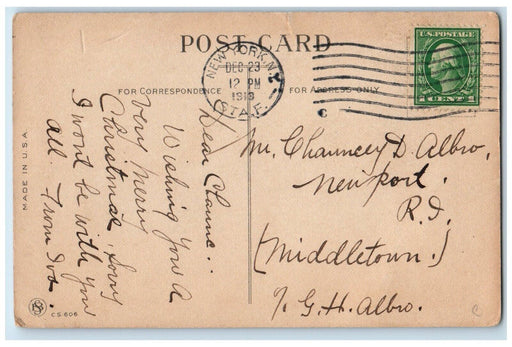 POST CARD
U.S. POSTAGE
1 CENT 1
NEW YORK, N.Y.
DEC 23
12 PM
STA. F
C
FOR CORRESPONDENCE
FOR ADDRESS ONLY
Dear Chaunc.:
Wishing You A
very Merry
Christmas. Sorry
I wont be with you
all. From
Mr. Chauncey D. Albro,
Newport.
R.I.
(Middletown.)
% G.H. Albro.
MADE IN U.S.A.
CS 606